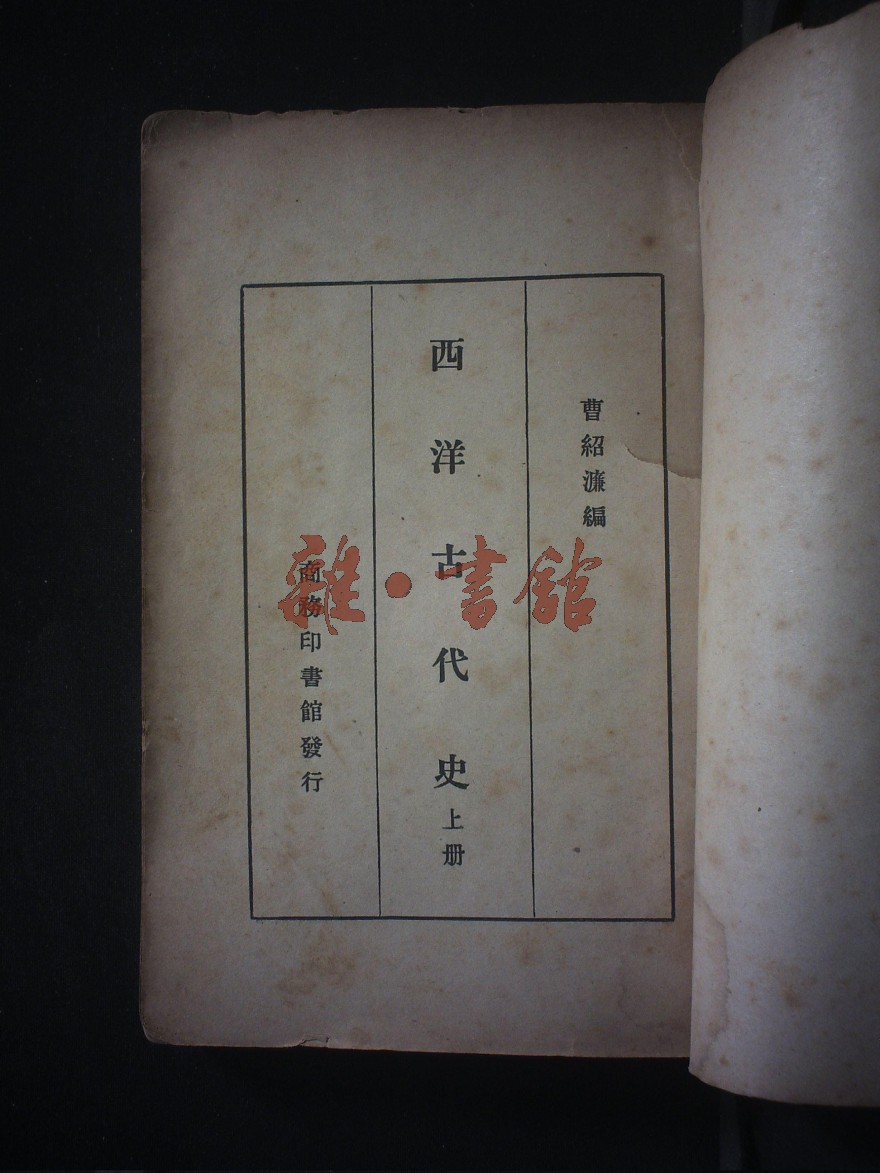 曹紹濂編
西洋古代史上册
商務印書館發行
雜·書館